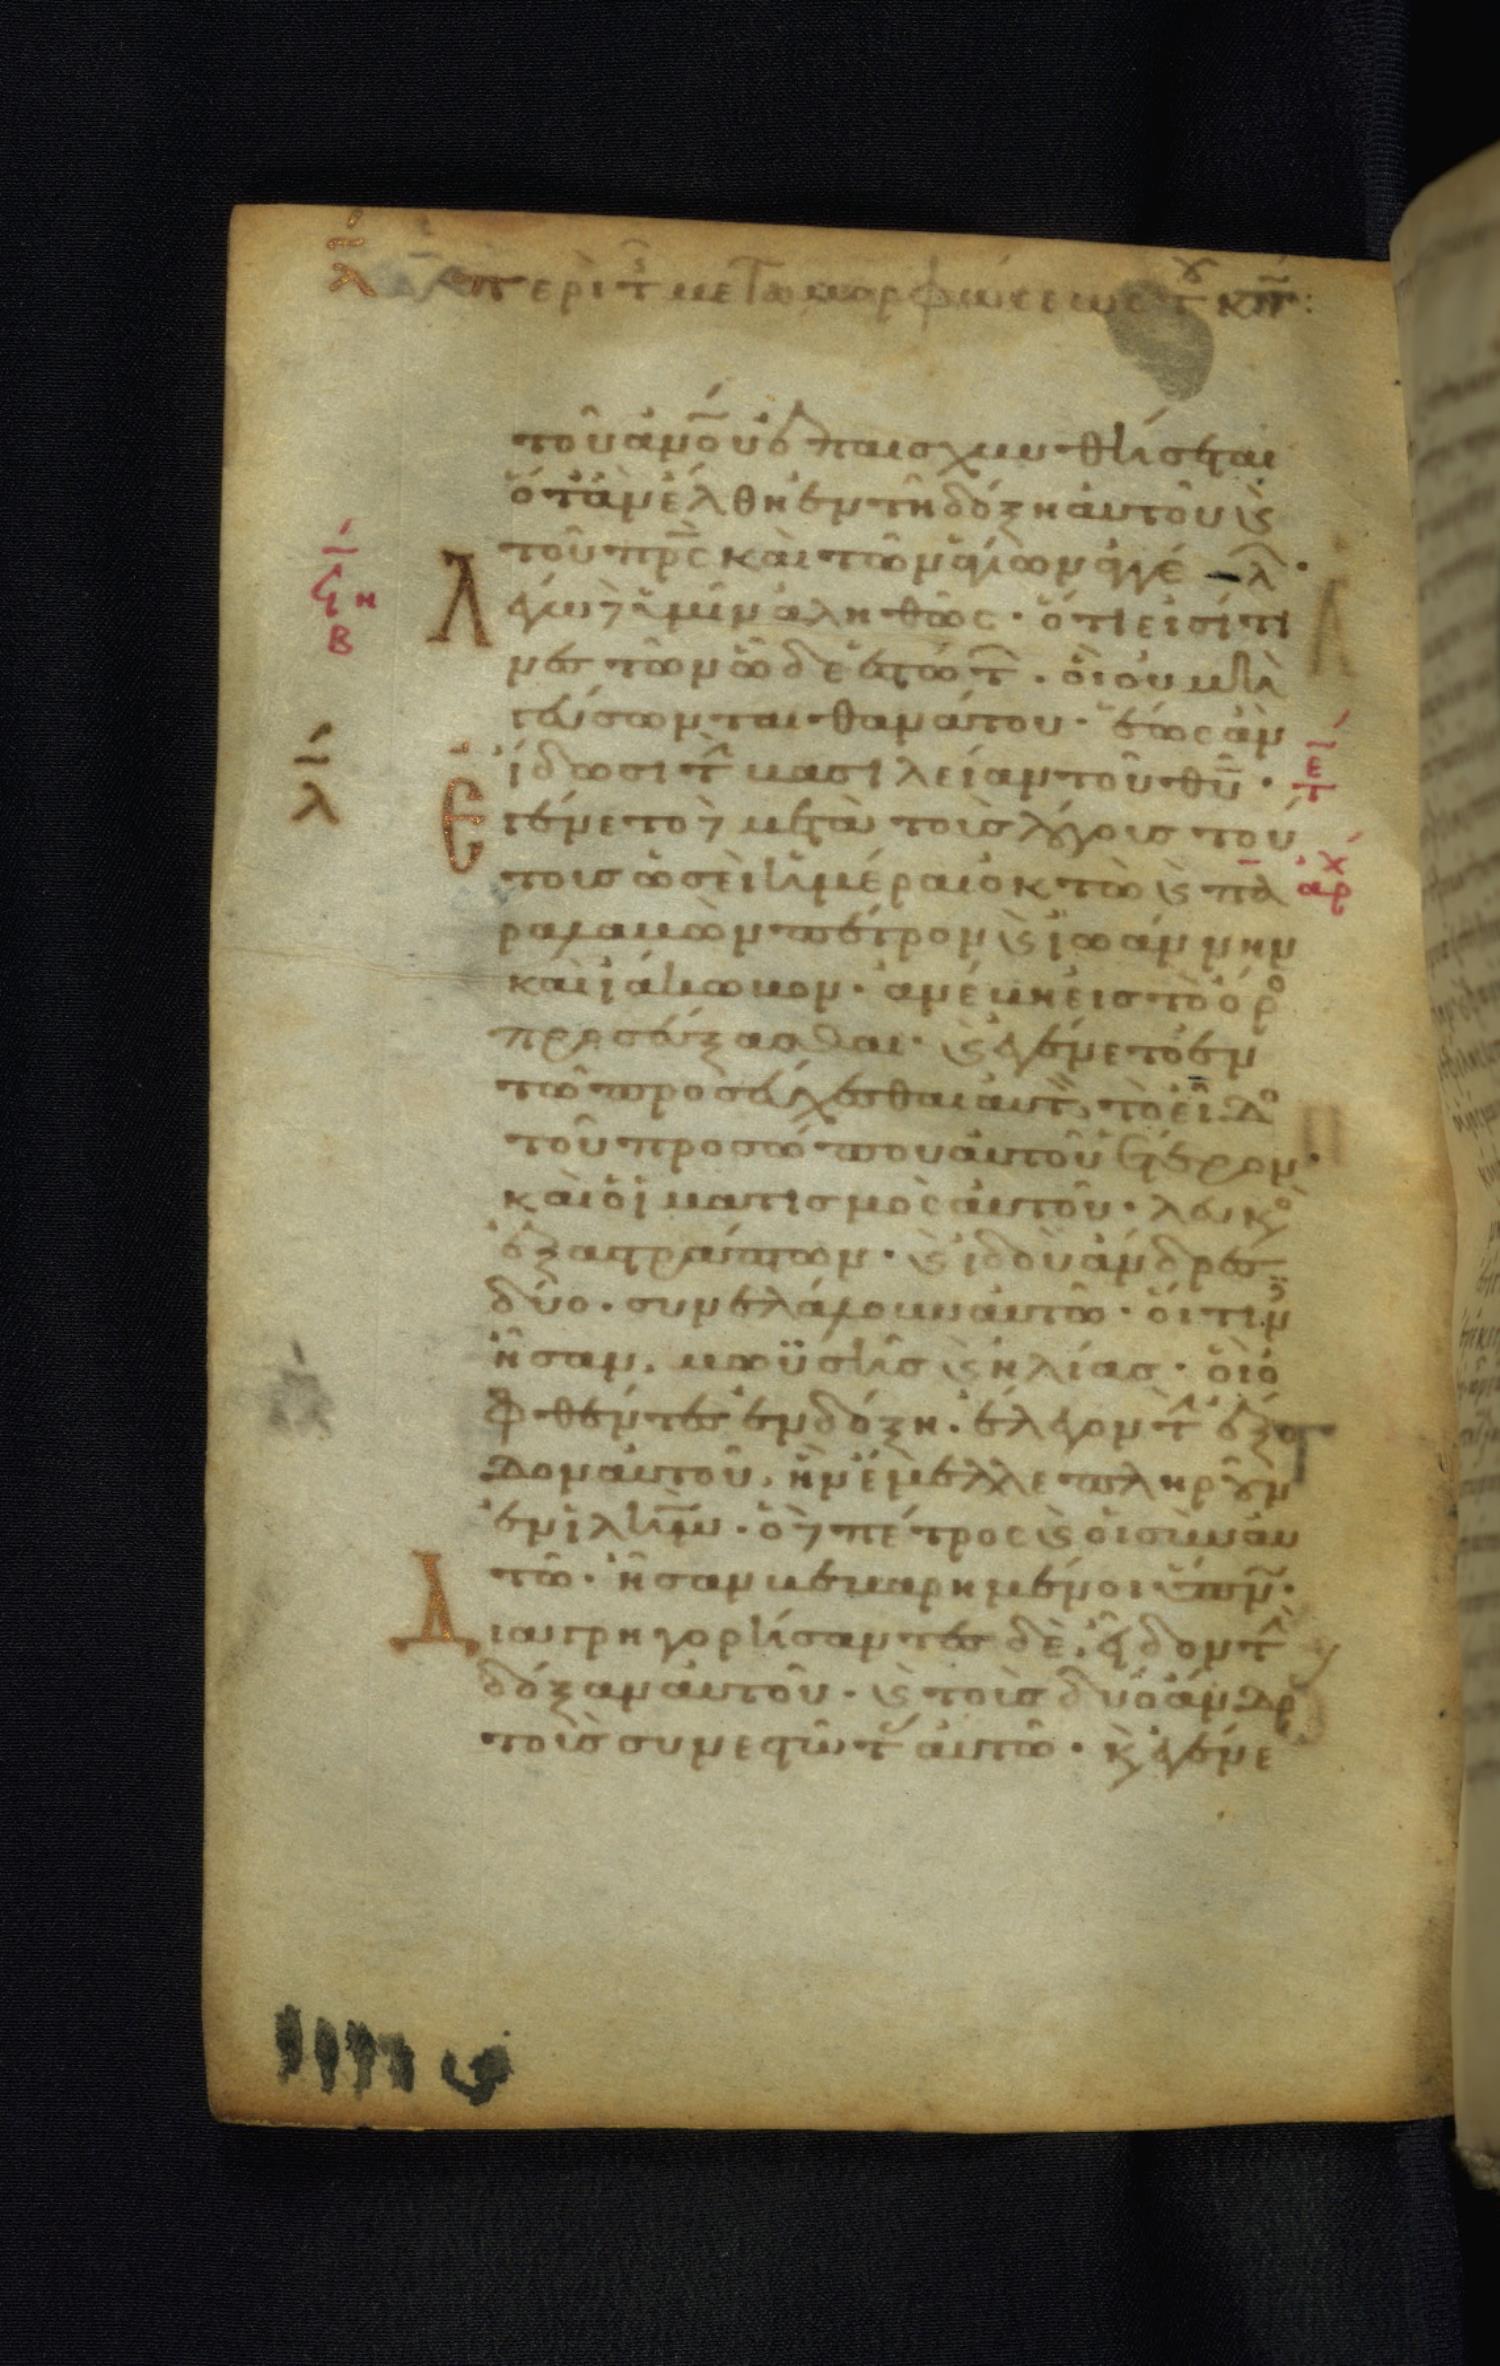 λ περὶ τ μεταμορφώσεως τ κυ:
τοῦ ἀνοῦ ἐπαισχυνθήσεται
ὅταν ἔλθη ἐν τῆ δόξη αὐτοῦ κ
τοῦ πρς καὶ τῶν ἁγίων ἀγγέλ·
Λέγω δὲ ὑμῖν ἀληθῶς· ὅτι εἰσί τι
νες τῶν ὧδε ἑστώτ· οἳ οὐ μὴ
γεύσωνται θανάτου· ἕως ἂν
ἴδωσι τ βασιλείαν τοῦ θυ·
Ἐγένετο δὲ μετὰ τοὺς λόγους τού
τους ὡσεὶ ἡμέραι ὀκτὼ κ πα
ραλαβὼν πέτρον κ ἰωάννην
καὶ ἰάκωβον· ἀνέβη εἰς τὸ ὄρο
προσεύξασθαι· κ ἐγένετο ἐν
τῶ προσεύχεσθαι αὐτ, τὸ εἶδο
τοῦ προσώπου αὐτοῦ ἕτερον·
καὶ ὁ ἱματισμὸς αὐτοῦ· λευκὸ
ἐξαστράπτων· κ ἰδοὺ ἄνδρες
δύο· συνελάλουν αὐτῶ· οἵτιν
ἦσαν, μωϋσῆς κ ηλίας· οἳ ὀ
φθέντες ἐν δόξη· ἔλεγον τ ἔξο
δον αὐτοῦ, ἣν ἔμελλε πληροῦν
ἐν ιλημ· ὁ δὲ πέτρος κ οἱ σὺν αὐ
τῶ· ἦσαν βεβαρημένοι ὕπν·
Διαγρηγορήσαντες δὲ, εἶδον τ
δόξαν αὐτοῦ· κ τοὺς δύο ἄνδρ
τοὺς συνεστῶτ αὐτῶ· κ ἐγένε
ζη
β
λ
ετ
αρχ